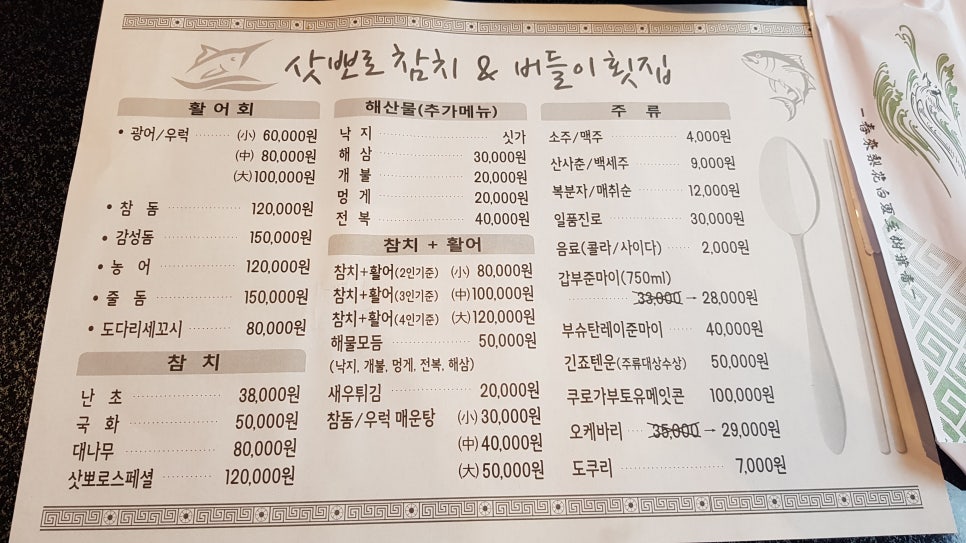 삿뽀로 참치 & 버들이 횟집
활 어 회
• 광어/우럭 (小) 60,000원
(中) 80,000원
(大) 100,000원
• 참 돔 120,000원
• 감성돔 150,000원
• 농 어 120,000원
• 줄 돔 150,000원
• 도다리세꼬시 80,000원
참 치
난 초 38,000원
국 화 50,000원
대나무 80,000원
삿뽀로스페셜 120,000원
해산물(추가메뉴)
낙 지 싯가
해 삼 30,000원
개 불 20,000원
멍 게 20,000원
전 복 40,000원
참치 + 활어
참치+활어(2인기준) (小) 80,000원
참치+활어(3인기준) (中) 100,000원
참치+활어(4인기준) (大) 120,000원
해물모듬 50,000원
(낙지, 개불, 멍게, 전복, 해삼)
새우튀김 20,000원
참돔/우럭 매운탕 (小) 30,000원
(中) 40,000원
(大) 50,000원
주 류
소주/맥주 4,000원
산사춘/백세주 9,000원
복분자/매취순 12,000원
일품진로 30,000원
음료(콜라/사이다) 2,000원
갑부준마이(750ml)
33,000 → 28,000원
부슈탄레이준마이 40,000원
긴죠텐운(주류대상수상) 50,000원
쿠로가부토유메잇콘 100,000원
오케바리 35,000 → 29,000원
도쿠리 7,000원
春來梨花白